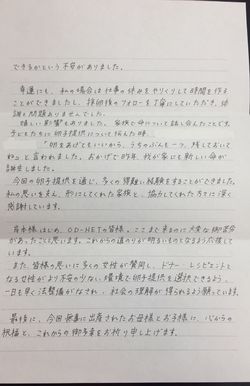 できるかという不安がありました。
幸運にも、私の場合は仕事の休みをやりくりして時間を作る
ことができましたし、採卵後のフォローも丁寧にしていただき、体
調も問題ありませんでした。
嬉しい影響もありました。家族で命について話し合えたことです。
子どもたちに卵子提供について伝えた時、
「卵をあげてもいいから、うちのぶんも一つ、残しておいて
ね」と言われました。おかげで昨年、我が家にも新しい命が
誕生しました。
今回の卵子提供を通じ、多くの得難い経験をすることができました。
私の思いを汲み、形にしてくれた家族と、協力してくれた方々に深く
感謝しています。
岸本様はじめ、OD-NETの皆様、ここまで来るのに大変な御苦労
があったことと思います。これからの道のりが明るいものとなるよう応援して
います。
また、皆様の思いに多くの女性が賛同し、ドナー、レシピエントと
なる女性がより不安の少ない環境で卵子提供を選択できるよう、
一日も早く法整備がなされ、社会の理解が得られるよう願っています。
最後に、今回無事に出産されたお母様とお子様に、心からの
祝福と、これからの御多幸をお祈り申し上げます。